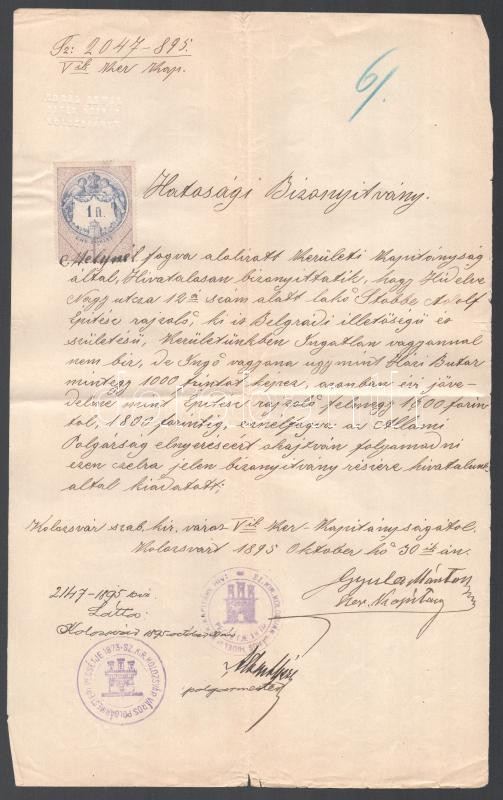 Sz: 2047-895.
V ik Ker Kap.
6/.
1 ft.
Hatosági Bizonyitvány.
Melynél fogva aloliratt Kerületi Kapitányság
által, Hivatalosan bizonyittatik, hogy Hidelve
Nagy utcza 12a szám alatt lakó Stobbe Adolf
Epitész rajzoló, ki is Belgrádi illetőségű és
születésű, Kerületünkben Ingatlan vagyannal
nem bir, de Ingó vagyana ugymint Házi Butar
mintegy 1000 funtot képez, azonban évi jöve-
delme mint Epitész rajzoló felmegy 1600 forin-
tol, 1800 forintig, eznélfogva az Állami
Polgárság elnyeréseért ohajtván folyamodni
ezen czelra jelen bizonyitvány részére hivatalunk
által kiadatott;
Kolozsvár szab. kir. város V ik Ker-Kapitányságatol.
Kolozsvárt 1895 Oktober hó 30 ik án.
Gyula Márton
Ker. Kapitány
2147-1895
Látta:
Kolozsvár 1895
polgármester
1873 SZ. K.R. KOLOZSVÁR VÁROS